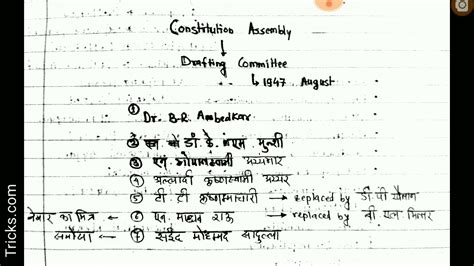 Constitution Assembly
Drafting Committee
1947 August
① Dr. B.R. Ambedkar
② डॉ के एम मुन्शी
③ एन गोपालस्वामी अय्यंगार
④ अल्लादी कृष्णस्वामी अय्यर
⑤ टी टी कृष्णामाचारी → replaced by डी पी खेतान
⑥ एन माधव राऊ → replaced by बी एल मित्तर
⑦ सईद मोहम्मद सादुल्ला
Tricks.com